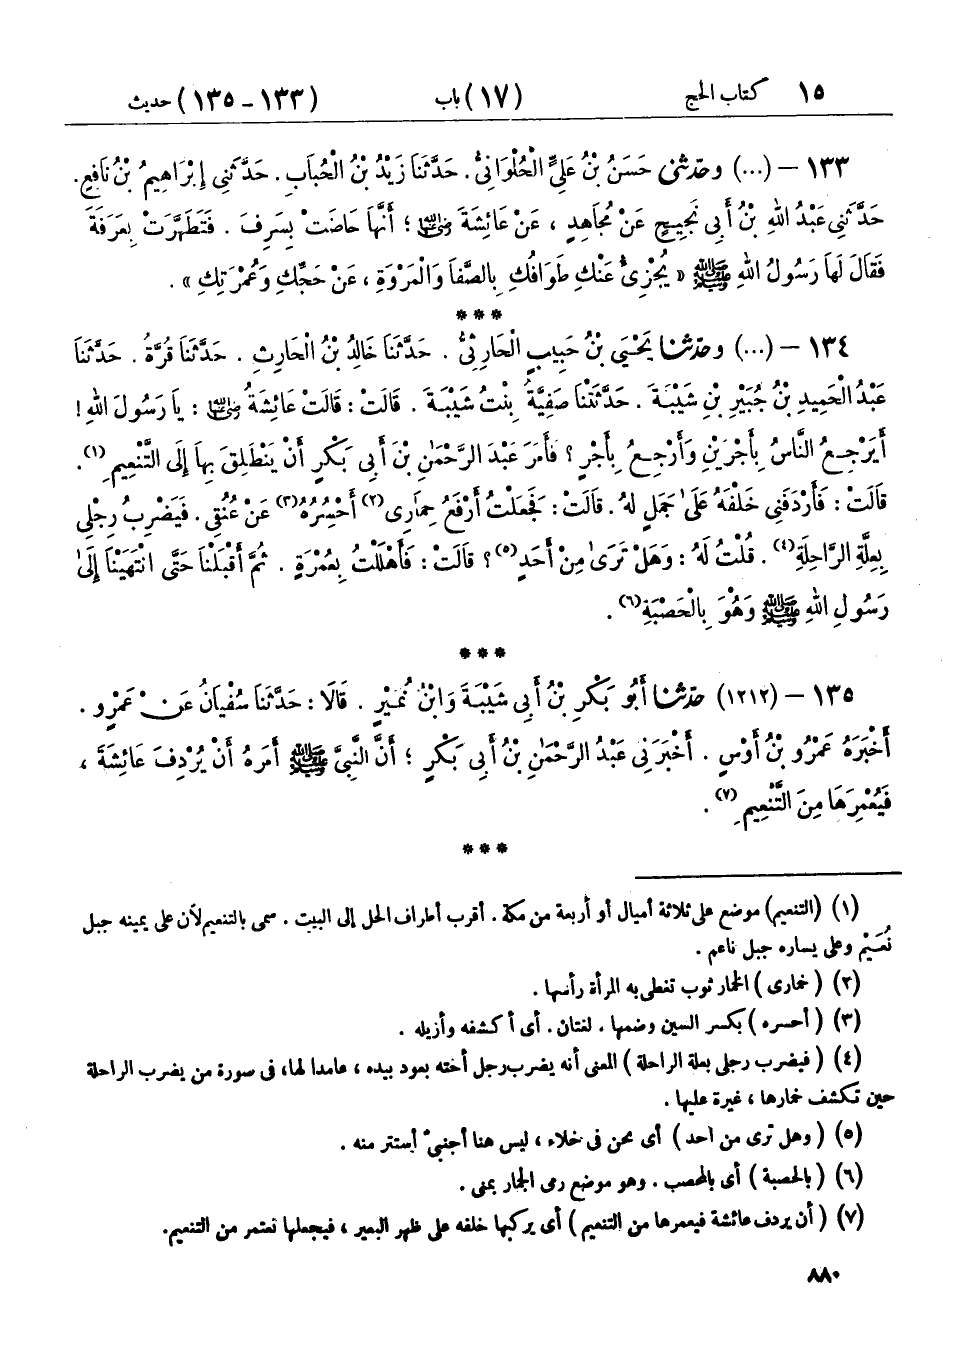 ١٥ كتاب الحج (١٧) باب (١٣٣ - ١٣٥) حديث
١٣٣ - (...) وحدّثني حَسَنُ بْنُ عَلِيٍّ الْحُلْوَانِيُّ. حَدَّثَنَا زَيْدُ بْنُ الْحُبَابِ. حَدَّثَنِي إِبْرَاهِيمُ بْنُ نَافِعٍ.
حَدَّثَنِي عَبْدُ اللهِ بْنُ أَبِي نَجِيحٍ عَنْ مُجَاهِدٍ، عَنْ عَائِشَةَ رضي الله عنها؛ أَنَّهَا حَاضَتْ بِسَرِفَ. فَتَطَهَّرَتْ بِعَرَفَةَ
فَقَالَ لَهَا رَسُولُ اللهِ ﷺ « يُجْزِئُ عَنْكِ طَوَافُكِ بِالصَّفَا وَالْمَرْوَةِ، عَنْ حَجِّكِ وَعُمْرَتِكِ ».
***
١٣٤ - (...) وحدّثنا يَحْيَى بْنُ حَبِيبٍ الْحَارِثِيُّ. حَدَّثَنَا خَالِدُ بْنُ الْحَارِثِ. حَدَّثَنَا قُرَّةُ. حَدَّثَنَا
عَبْدُ الْحَمِيدِ بْنُ جُبَيْرِ بْنِ شَيْبَةَ. حَدَّثَتْنَا صَفِيَّةُ بِنْتُ شَيْبَةَ. قَالَتْ: قَالَتْ عَائِشَةُ رضي الله عنها: يَا رَسُولَ اللهِ!
أَيَرْجِعُ النَّاسُ بِأَجْرَيْنِ وَأَرْجِعُ بِأَجْرٍ؟ فَأَمَرَ عَبْدَ الرَّحْمَٰنِ بْنَ أَبِي بَكْرٍ أَنْ يَنْطَلِقَ بِهَا إِلَى التَّنْعِيمِ(١).
قَالَتْ: فَأَرْدَفَنِي خَلْفَهُ عَلَىٰ جَمَلٍ لَهُ. قَالَتْ: فَجَعَلْتُ أَرْفَعُ خِمَارِي(٢) أَحْسُرُهُ(٣) عَنْ عُنُقِي. فَيَضْرِبُ رِجْلِي
بِعِلَّةِ الرَّاحِلَةِ(٤). قُلْتُ لَهُ: وَهَلْ تَرَىٰ مِنْ أَحَدٍ(٥)؟ قَالَتْ: فَأَهْلَلْتُ بِعُمْرَةٍ. ثُمَّ أَقْبَلْنَا حَتَّى انْتَهَيْنَا إِلَىٰ
رَسُولِ اللهِ ﷺ وَهُوَ بِالْحَصْبَةِ(٦).
***
١٣٥ - (١٢١٢) حدّثنا أَبُو بَكْرِ بْنُ أَبِي شَيْبَةَ وَابْنُ نُمَيْرٍ. قَالَا: حَدَّثَنَا سُفْيَانُ عَنْ عَمْرٍو.
أَخْبَرَهُ عَمْرُو بْنُ أَوْسٍ. أَخْبَرَنِي عَبْدُ الرَّحْمَٰنِ بْنُ أَبِي بَكْرٍ؛ أَنَّ النَّبِيَّ ﷺ أَمَرَهُ أَنْ يُرْدِفَ عَائِشَةَ،
فَيُعْمِرَهَا مِنَ التَّنْعِيمِ(٧).
***
(١) (التنعيم) موضع على ثلاثة أميال أو أربعة من مكة. أقرب أطراف الحل إلى البيت. سمى بالتنعيم لأن على يمينه جبل
نُعَيْم وعلى يساره جبل ناعم.
(٢) (خمارى) الخمار ثوب تغطى به المرأة رأسها.
(٣) (أحسره) بكسر السين وضمها، لغتان. أى أكشفه وأزيله.
(٤) (فيضرب رجلى بعلة الراحلة) المعنى أنه يضرب رجل أخته بعود بيده، عامدا لها، فى صورة من يضرب الراحلة
حين تكشف خمارها، غيرة عليها.
(٥) (وهل ترى من أحد) أى نحن فى خلاء، ليس هنا أجنبىّ أستتر منه.
(٦) (بالحصبة) أى بالمحصب. وهو موضع رمى الجمار بمنى.
(٧) (أن يردف عائشة فيعمرها من التنعيم) أى يركبها خلفه على ظهر البعير، فيجعلها تعتمر من التنعيم.
٨٨٠